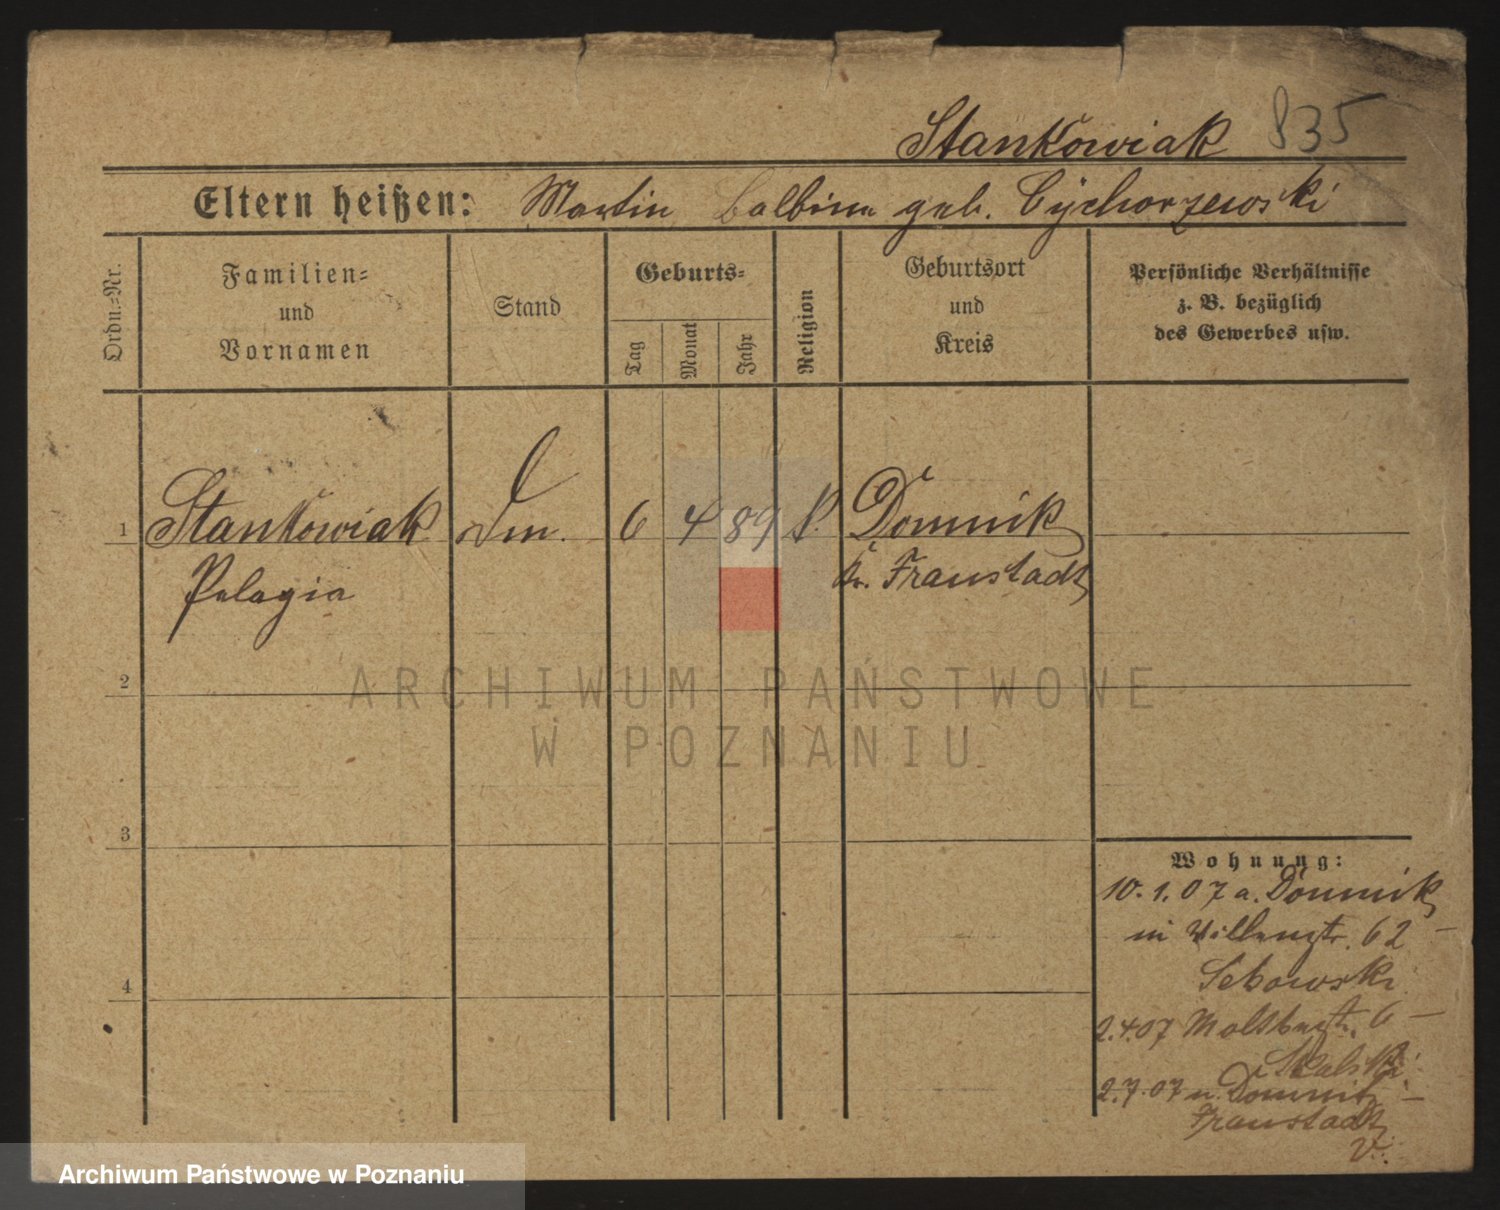 Stankowiak 835
Eltern heißen: Martin Balbina geb. Cychorzewski
Ordn.=Nr.
Familien=
und
Vornamen
Stand
Geburts=
Tag
Monat
Jahr
Religion
Geburtsort
und
Kreis
Persönliche Verhältnisse
z. B. bezüglich
des Gewerbes usw.
1 Stankowiak 6 4 89 k. Domnik
Pelagia Kr. Fraustadt
2
3
4
Wohnung:
10.1.07 a. Domnik
in 62 –
2.4.07 6 –
Skalski
2.7.07 n. Domnik –
Fraustadt
V.
ARCHIWUM PAŃSTWOWE
W POZNANIU
Archiwum Państwowe w Poznaniu